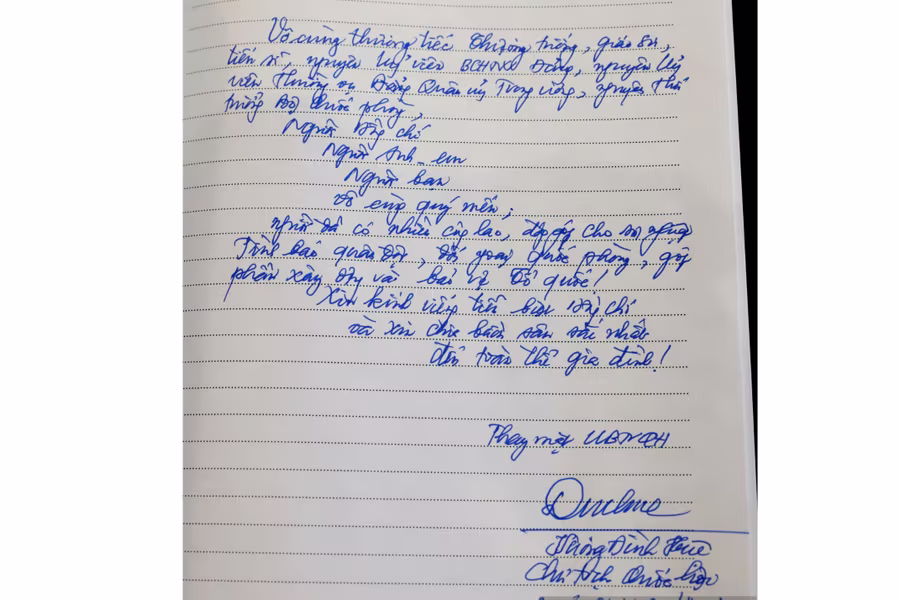 Vô cùng thương tiếc Thượng tướng, giáo sư,
tiến sĩ, nguyên Uỷ viên BCHTW Đảng, nguyên Uỷ
viên Thường vụ Đảng Quân uỷ Trung ương, nguyên Thứ
trưởng Bộ Quốc phòng,
Người đồng chí
Người Anh - em
Người bạn
vô cùng quý mến;
người đã có nhiều công lao, đóng góp cho sự nghiệp
Tình báo quân đội, đối ngoại quốc phòng, góp
phần xây dựng và bảo vệ Tổ quốc!
Xin kính viếng tiễn biệt đồng chí
và xin chia buồn sâu sắc nhất
đến toàn thể gia đình!
Thay mặt UBTVQH
Vương Đình Huệ
Chủ tịch Quốc hội